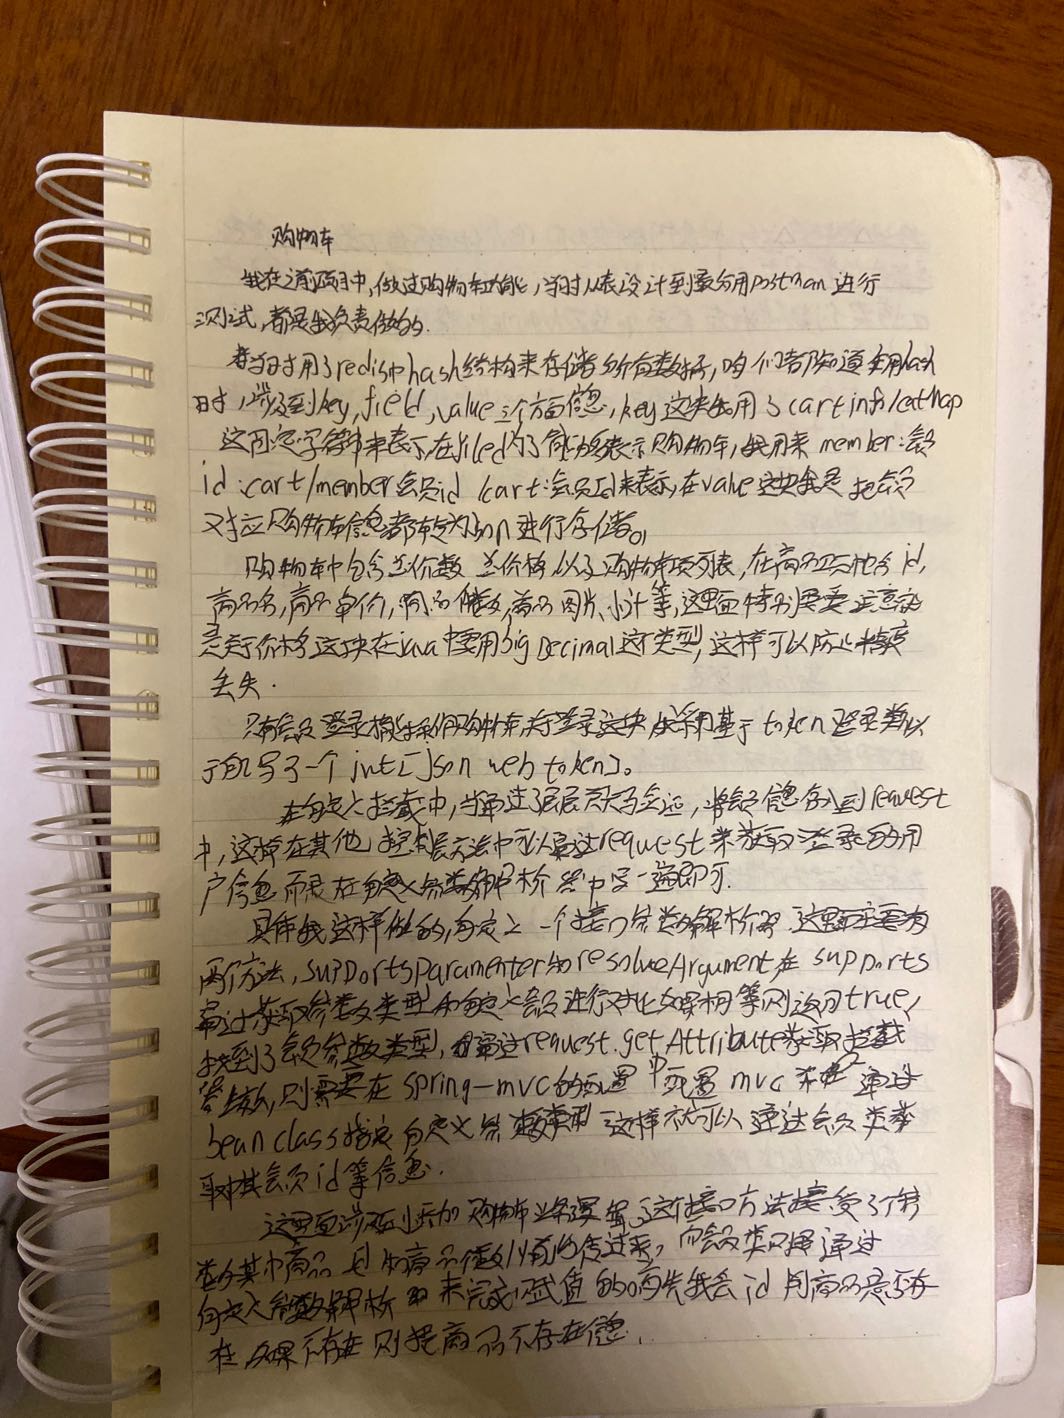 购物车
我在之前项目中,做过购物车功能,当时从表设计到最后用postman 进行
测试,都是我负责做的.
当时用了redis中hash结构来存储所有数据,咱们都知道采用hash
时,涉及到key,field,value三个方面信息,key这块我用了cart info/cat hap
这固定字符串来表示,在filed为了能够表示购物车,我用来 member:会员
id:cart/member会员id /cart:会员id来表示,在value这块我是 把会员
对应购物车信息都转为json进行存储。
购物车中包含总价数 总价格 以及购物车项列表,在商品项包含id,
商品名,商品单价,商品件数,商品图片,小计等,这里面特别需要注意的
是关于价格这块在java中要用big Decimal这个类型,这样可以防止精度
丢失.
只有会员登录 购物车,关于登录这块 我采用基于token登录类似
于自己写了一个jwt[json web token]。
在自定义拦截中,当通过了层层 ,将会员信息存入到request
中,这样在其他 控制层方法中可以通过request来获取登录的用
户信息 而是在自定义参数解析 器中写一遍即可.
具体我这样做的,自定义一个接口参数解析器 这里面主要有
两个方法,supportsparamenter和resolveArgument,在 supports
通过获取参数类型和自定义会员进行对比如果相等则返回true,
找到了会员参数类型,再通过request.getAttribute获取拦截
,则需要在 spring-mvc的配置中配置mvc 通过
bean class指定 自定义参数类型 这样就可以 通过会员类来
获取其会员id等信息.
这里面涉及到添加 购物车业务逻辑,这个接口方法接受了个参
数其中商品id和商品件数从前端传过来,而会员类只是通过
自定义参数解析 来完成赋值的。首先我会 id 判商品是否存
在 如果不存在则提商品不存在信息.